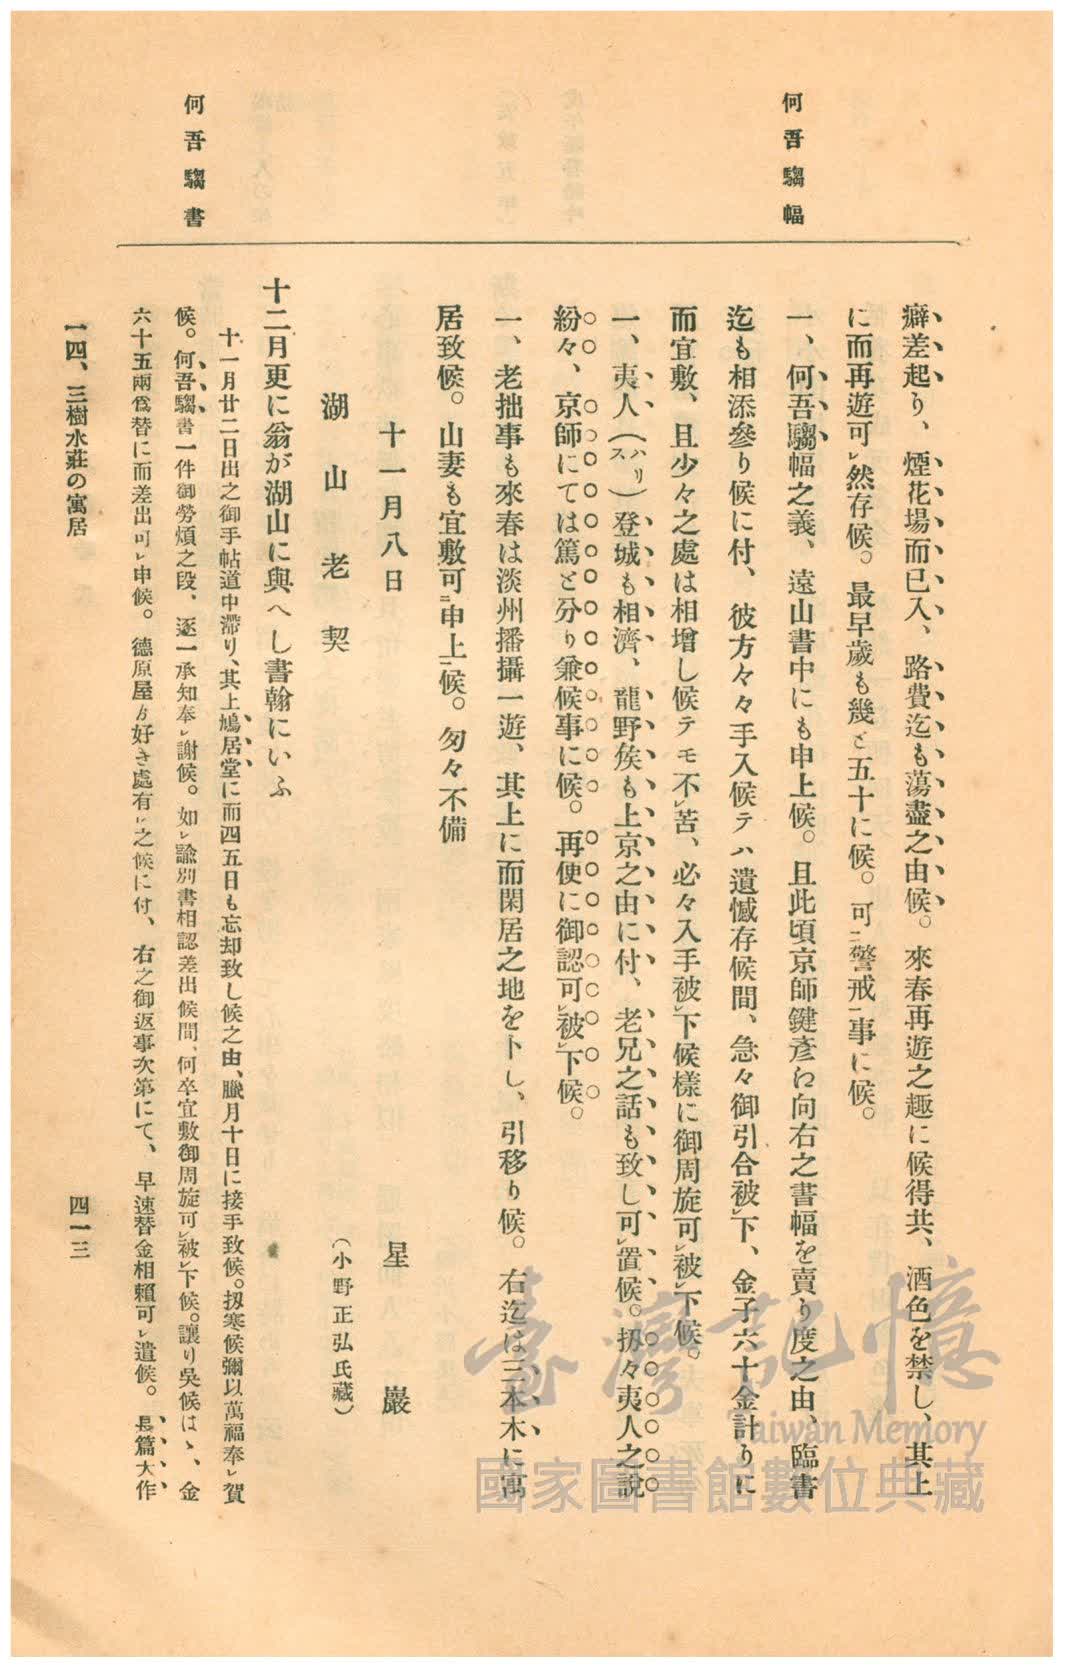 何吾騶幅
癖差起り、煙花場而已入、路費迄も蕩盡之由候。來春再遊之趣に候得共、酒色を禁し、其上
に而再遊可レ然存候。最早歲も幾ど五十に候。可ニ警戒一事に候。
一、何吾騶幅之義、遠山書中にも申上候。且此頃京師鍵彥に向右之書幅を賣り度之由、臨書
迄も相添參り候に付、彼方々々手入候テハ遺憾存候間、急々御引合被レ下、金子六十金計りに
而宜敷、且少々之處は相增し候テモ不レ苦、必々入手被レ下候樣に御周旋可レ被レ下候。
一、夷人（ハリス）登城も相濟、龍野矦も上京之由に付、老兄之話も致し可レ置候。扨々夷人之說
紛々、京師にては篤と分り兼候事に候。再便に御認可レ被レ下候。
一、老拙事も來春は淡州播攝一遊、其上に而閑居之地をトし、引移り候。右迄は三本木に寓
居致候。山妻も宜敷可ニ申上一候。匆々不備
十一月八日　星巖
湖山老契
（小野正弘氏藏）
十二月更に翁が湖山に與へし書翰にいふ
何吾騶書
十一月廿二日出之御手帖道中滯り、其上鳩居堂に而四五日も忘却致し候之由、臘月十日に接手致候。扨寒候彌以萬福奉レ賀
候。何吾騶書一件御勞煩之段、逐一承知奉レ謝候。如レ諭別書相認差出候間、何卒宜敷御周旋可レ被レ下候。讓り吳候はゝ、金
六十五兩爲替に而差出可レ申候。德原屋ゟ好き處有レ之候に付、右之御返事次第にて、早速替金相賴可レ遣候。長篇大作
一四、三樹水莊の寓居
四一三
臺灣記憶
Taiwan Memory
國家圖書館數位典藏